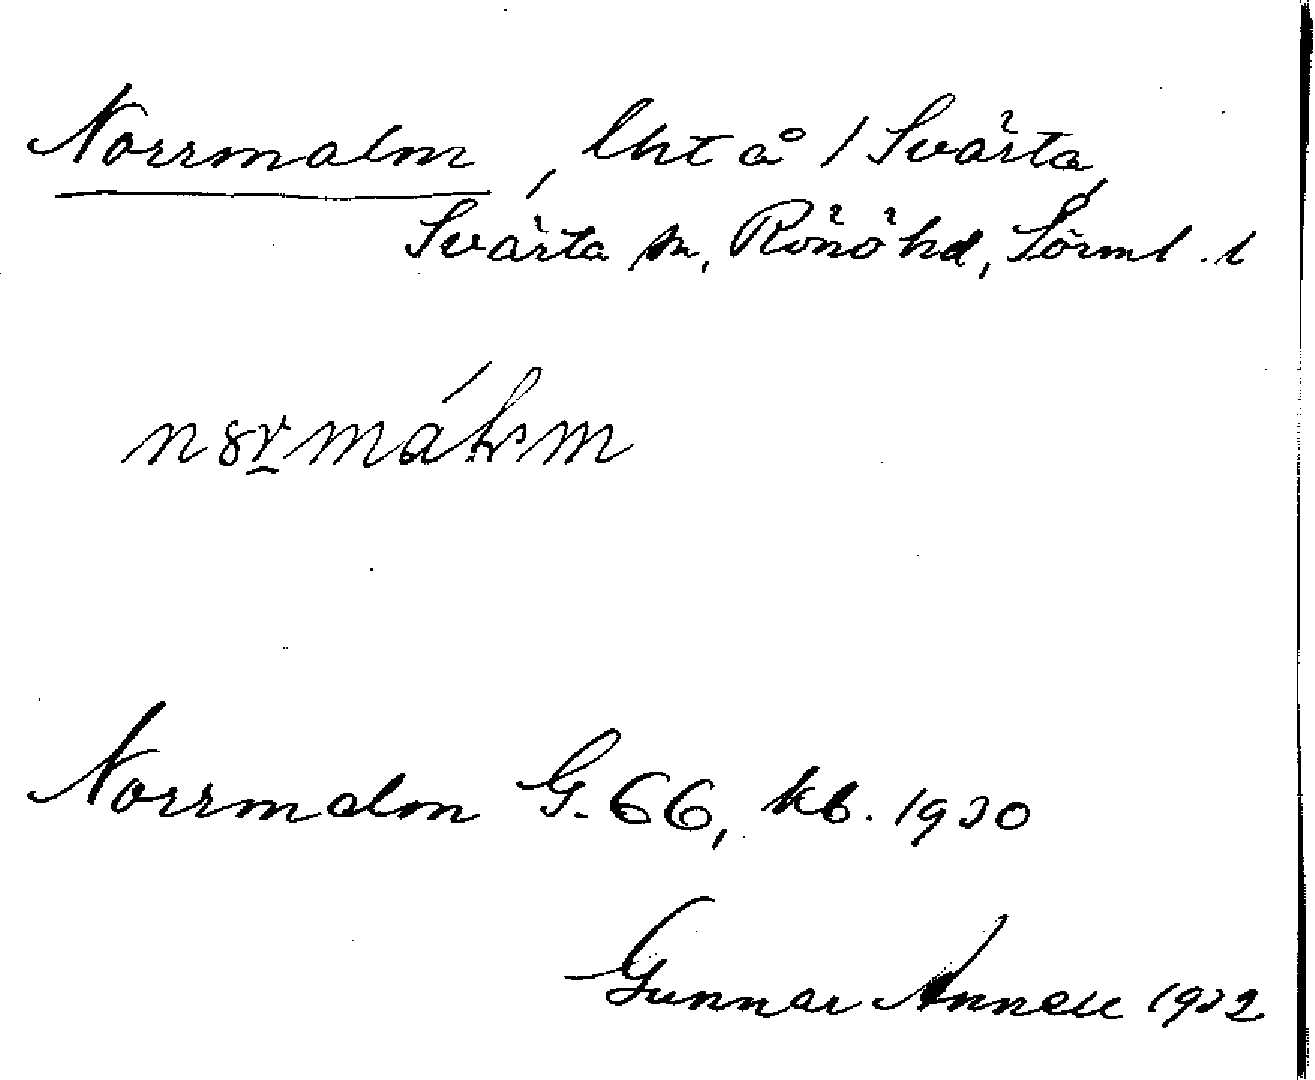 Norrmalm, lht å 1 Svärta,
Svärta sn, Rönö hd, Sörml. l
Norrmalm G. 66, kb. 1930
Gunnar Annell 1932